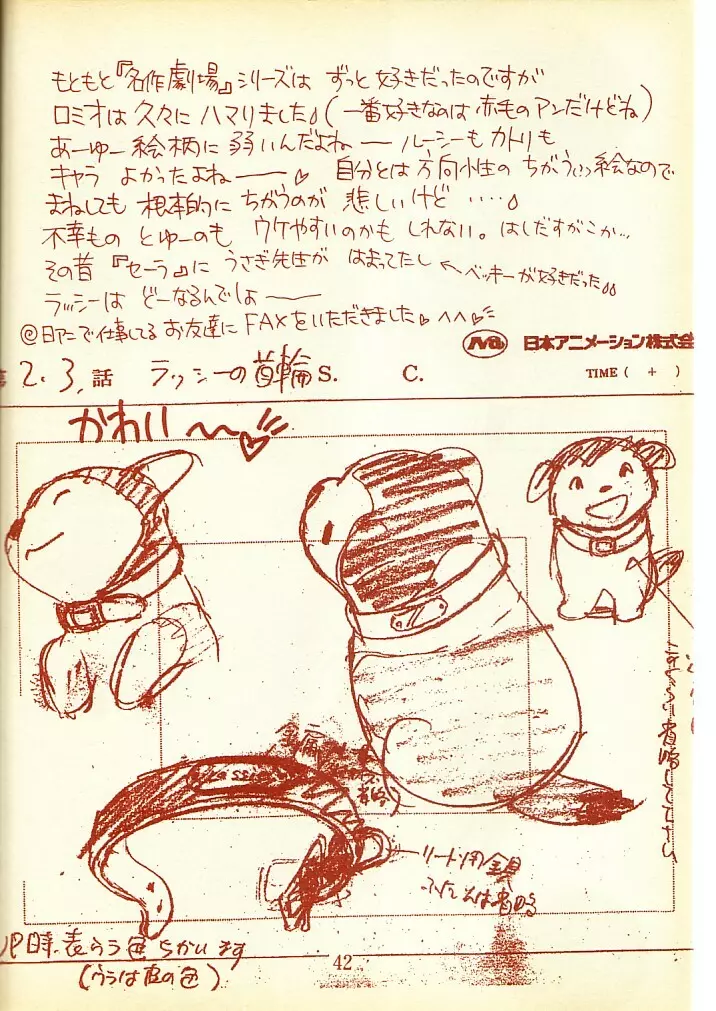 もともと『名作劇場』シリーズは ずっと好きだったのですが
ロミオは久々に ハマりました。(一番好きなのは赤毛のアンだけどね)
あーゆー絵柄に 弱いんだよね ― ルーシーもカトリも
キャラ よかったよね―― ♡ 自分とは方向性の ちがう絵なので
まねしても 根本的に ちがうのが 悲しいけど ・・・・
不幸もの とゆーのも ウケやすいのかも しれない。はしだすがこか…
その昔 『セーラ』に うさぎ先生が はまってたし ←ベッキーが好きだった
ラッシーは どーなるんでしょ――
@日アニで仕事してる お友達に FAXをいただきました♡ ^^♡
日本アニメーション株式会
2.3. 話 ラッシーの首輪 S. C. TIME ( + )
かわい〜〜♡
金属
Lassie
省略
リード用金具
ふだんは省略
UP時、表うら色ちがいます
(ウラは皮の色)
42